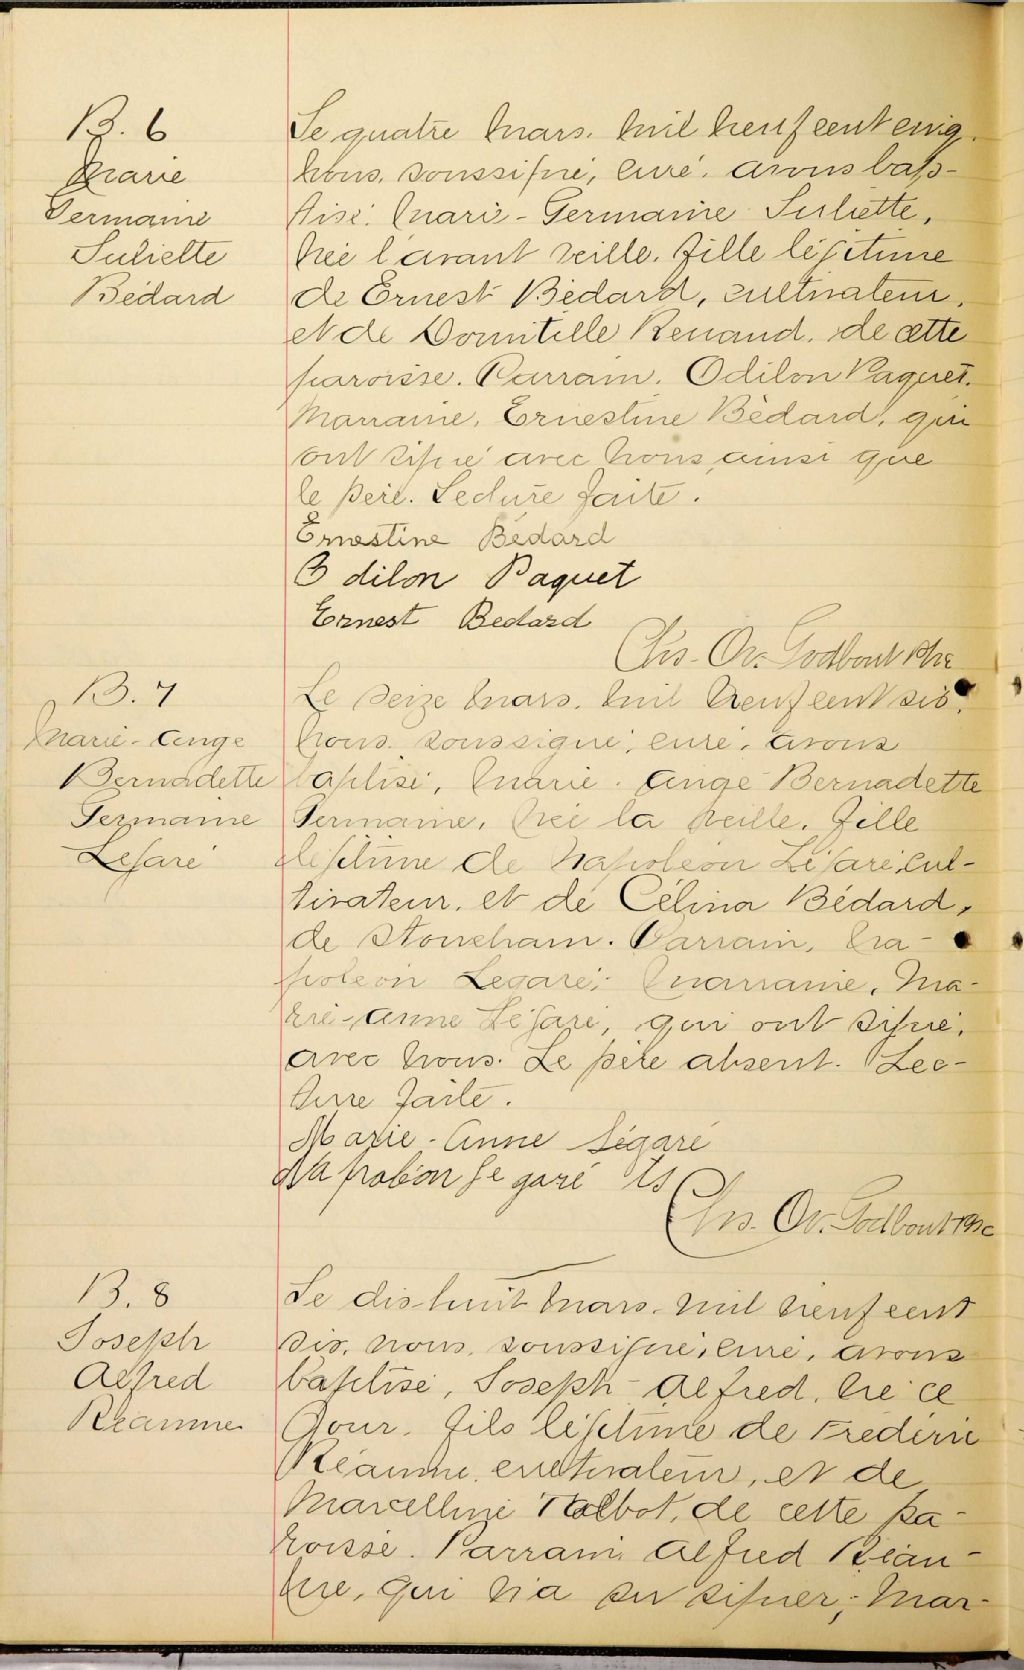 B. 6
Marie
Germaine
Juliette
Bédard
Le quatre Mars, mil neuf cent cinq
nous, soussigné, curé, avons bap-
tisé, Marie-Germaine Juliette,
née l'avant veille, fille légitime
de Ernest Bédard, cultivateur,
et de Domitille Renaud, de cette
paroisse. Parrain, Odilon Paquet,
Marraine, Ernestine Bédard, qui
ont signé avec nous ainsi que
le père. Lecture faite.
Ernestine Bédard
Odilon Paquet
Ernest Bedard
Chs. Ov. Godbout Ptre
B. 7
Marie-Ange
Bernadette
Germaine
Légaré
Le seize Mars, mil neuf cent six,
nous, soussigné, curé, avons
baptisé, Marie-Ange Bernadette
Germaine, née la veille, fille
légitime de Napoléon Légaré, cul-
tivateur, et de Célina Bédard,
de Stoneham. Parrain, Na-
poléon Legaré; Marraine, Ma-
rie-Anne Légaré, qui ont signé,
avec nous. Le père absent. Lec-
ture faite.
Marie-Anne Légaré
Napoléon Le garé ts
Chs. Ov. Godbout Ptre
B. 8
Joseph
Alfred
Réaume
Le dix-huit Mars, mil neuf cent
six, nous, soussigné, curé, avons
baptisé, Joseph-Alfred, né ce
jour, fils légitime de Fréderic
Réaume, cultivateur, et de
Marcelline Talbot, de cette pa-
roisse. Parrain Alfred Réau-
me, qui n'a su signer; Mar-